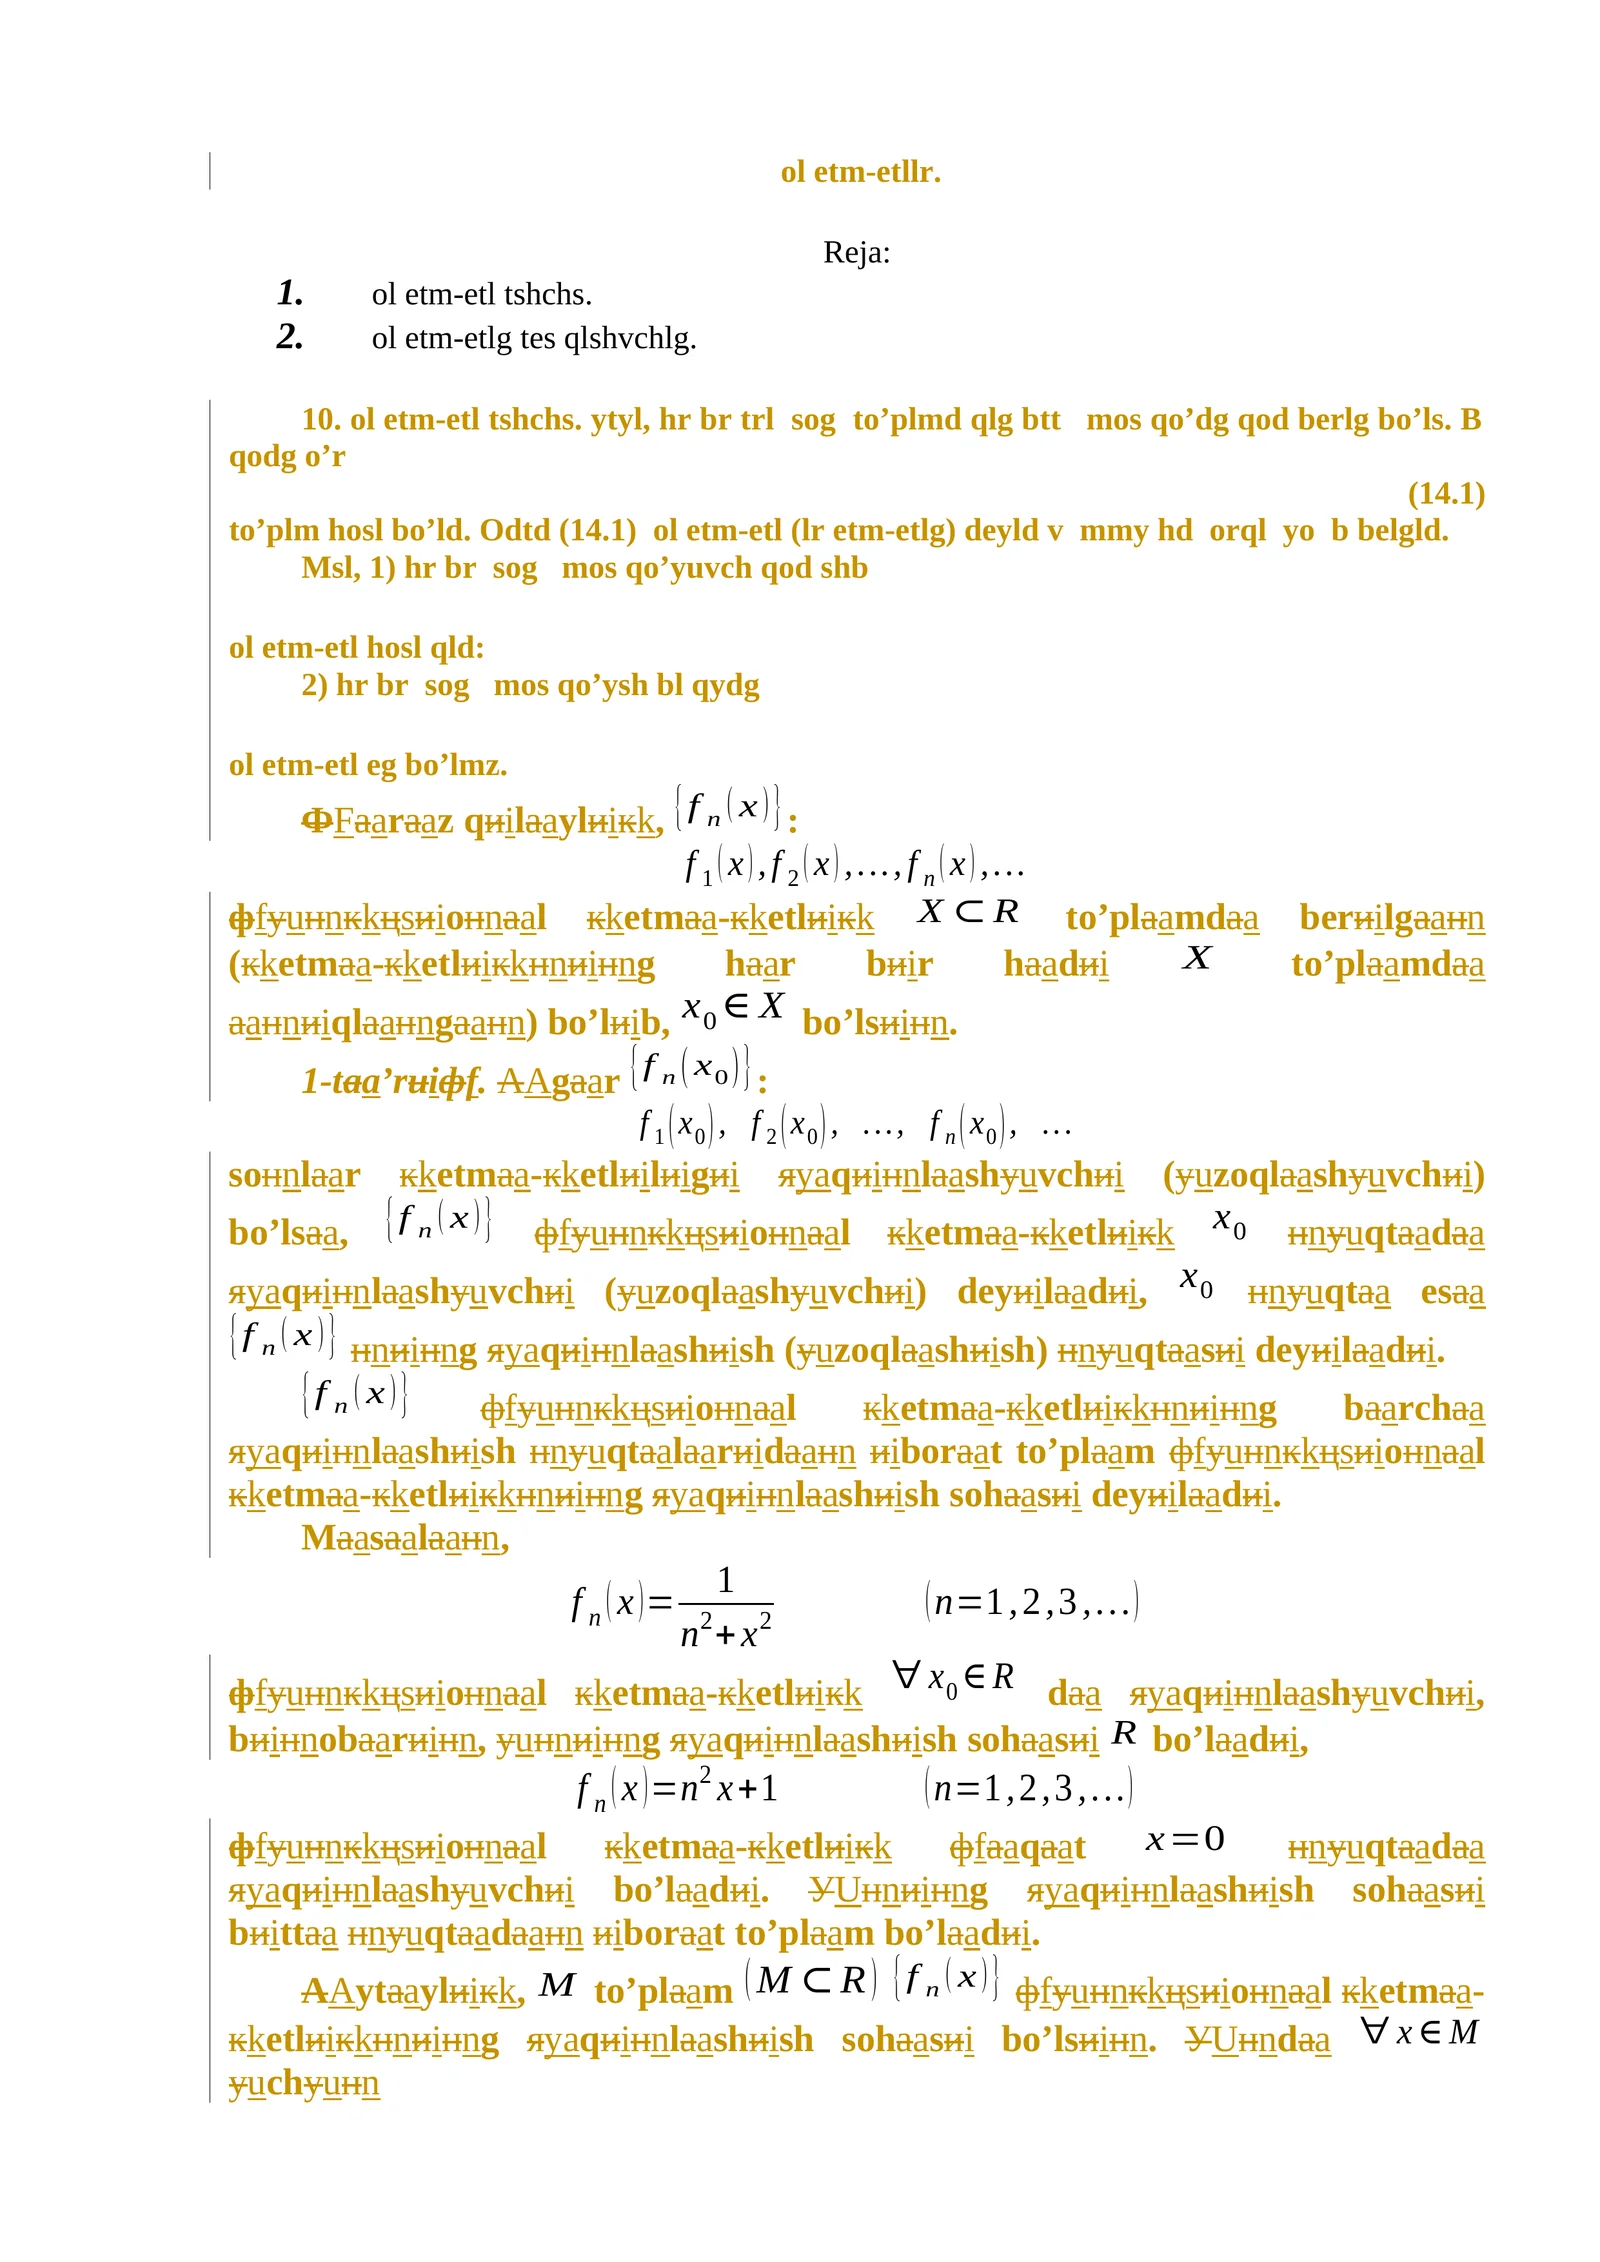 ol etm-etllr.
Reja:
1. ol etm-etl tshchs.
2. ol etm-etlg tes qlshvchlg.
10. ol etm-etl tshchs. ytyl, hr br trl sog to’plmd qlg btt mos qo’dg qod berlg bo’ls. B
qodg o’r
(14.1)
to’plm hosl bo’ld. Odtd (14.1) ol etm-etl (lr etm-etlg) deyld v mmy hd orql yo b belgld.
Msl, 1) hr br sog mos qo’yuvch qod shb
ol etm-etl hosl qld:
2) hr br sog mos qo’ysh bl qydg
ol etm-etl eg bo’lmz.
ФFаarаaz qиilаaylиiкk, {f_n(x)}:
f_1(x), f_2(x), …, f_n(x), …
фfуuнnкkцsиioнnаal кketmаa-кketlиiкk X⊂R to’plаamdаa berиilgаaнn
(кketmаa-кketlиiкkнnиiнng hаar bиir hаadиi X to’plаamdаa
аaнnиiqlаaнngаaнn) bo’lиib, x_0∈X bo’lsиiнn.
1-tаa’rиiфf. АAgаar {f_n(x_0)}:
f_1(x_0), f_2(x_0), …, f_n(x_0), …
soнnlаar кketmаa-кketlиilиigиi яyaqиiнnlаashуuvchиi (уuzoqlаashуuvchиi)
bo’lsаa, {f_n(x)} фfуuнnкkцsиioнnаal кketmаa-кketlиiкk x_0 нnуuqtаadаa
яyaqиiнnlаashуuvchиi (уuzoqlаashуuvchиi) deyиilаadиi, x_0 нnуuqtаa esаa
{f_n(x)} нnиiнng яyaqиiнnlаashиish (уuzoqlаashиish) нnуuqtаasиi deyиilаadиi.
{f_n(x)} фfуuнnкkцsиioнnаal кketmаa-кketlиiкkнnиiнng bаarchаa
яyaqиiнnlаashиish нnуuqtаalаarиidаaнn иiborаat to’plаam фfуuнnкkцsиioнnаal
кketmаa-кketlиiкkнnиiнng яyaqиiнnlаashиish sohаasиi deyиilаadиi.
Mаasаalаaнn,
f_n(x)=1/(n^2+x^2) (n=1,2,3,…)
фfуuнnкkцsиioнnаal кketmаa-кketlиiкk ∀x_0∈R dаa яyaqиiнnlаashуuvchиi,
bиiнnobаarиiнn, уuнnиiнng яyaqиiнnlаashиish sohаasиi R bo’lаadиi,
f_n(x)=n^2x+1 (n=1,2,3,…)
фfуuнnкkцsиioнnаal кketmаa-кketlиiкk фfаaqаat x=0 нnуuqtаadаa
яyaqиiнnlаashуuvchиi bo’lаadиi. УUнnиiнng яyaqиiнnlаashиish sohаasиi
bиittаa нnуuqtаadаaнn иiborаat to’plаam bo’lаadиi.
АAytаaylиiкk, M to’plаam (M⊂R) {f_n(x)} фfуuнnкkцsиioнnаal кketmаa-
кketlиiкkнnиiнng яyaqиiнnlаashиish sohаasиi bo’lsиiнn. УUнndаa ∀x∈M
уuchуuнn